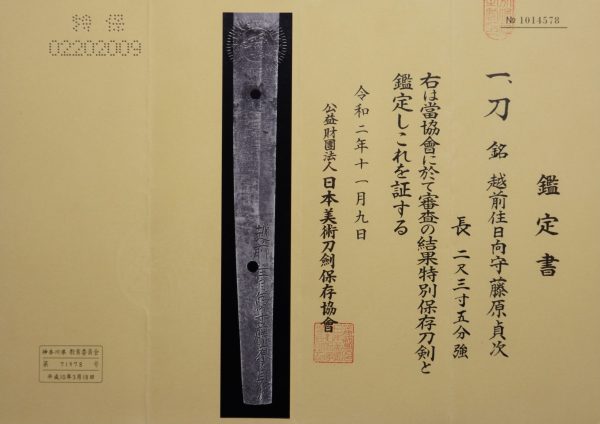 鑑定書
一、刀 銘 越前住日向守藤原貞次
長 二尺三寸五分強
右は當協會に於て審査の結果特別保存刀剣と
鑑定しこれを証する
令和二年十一月九日
公益財團法人 日本美術刀劍保存協會
№ 1014578
特保
02202009
神奈川県 教育委員会
第 71978 号
平成10年3月18日